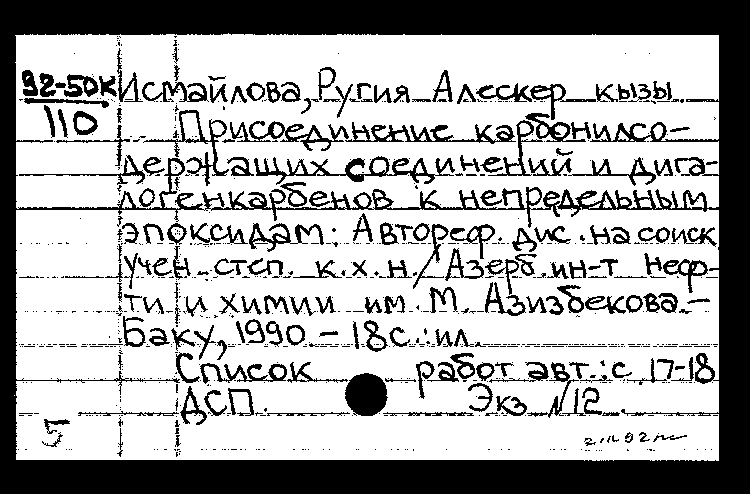 92-50к Исмайлова, Ругия Алескер кызы
110 Присоединение карбонилсо-
держащих соединений и дига-
логенкарбенов к непредельным
эпоксидам: Автореф. дис. на соиск
учен. степ. к.х.н. / Азерб. ин-т неф-
ти и химии им. М. Азизбекова.-
Баку, 1990. - 18 с.: ил.
Список работ авт.: с. 17-18
ДСП. Экз №12.
5